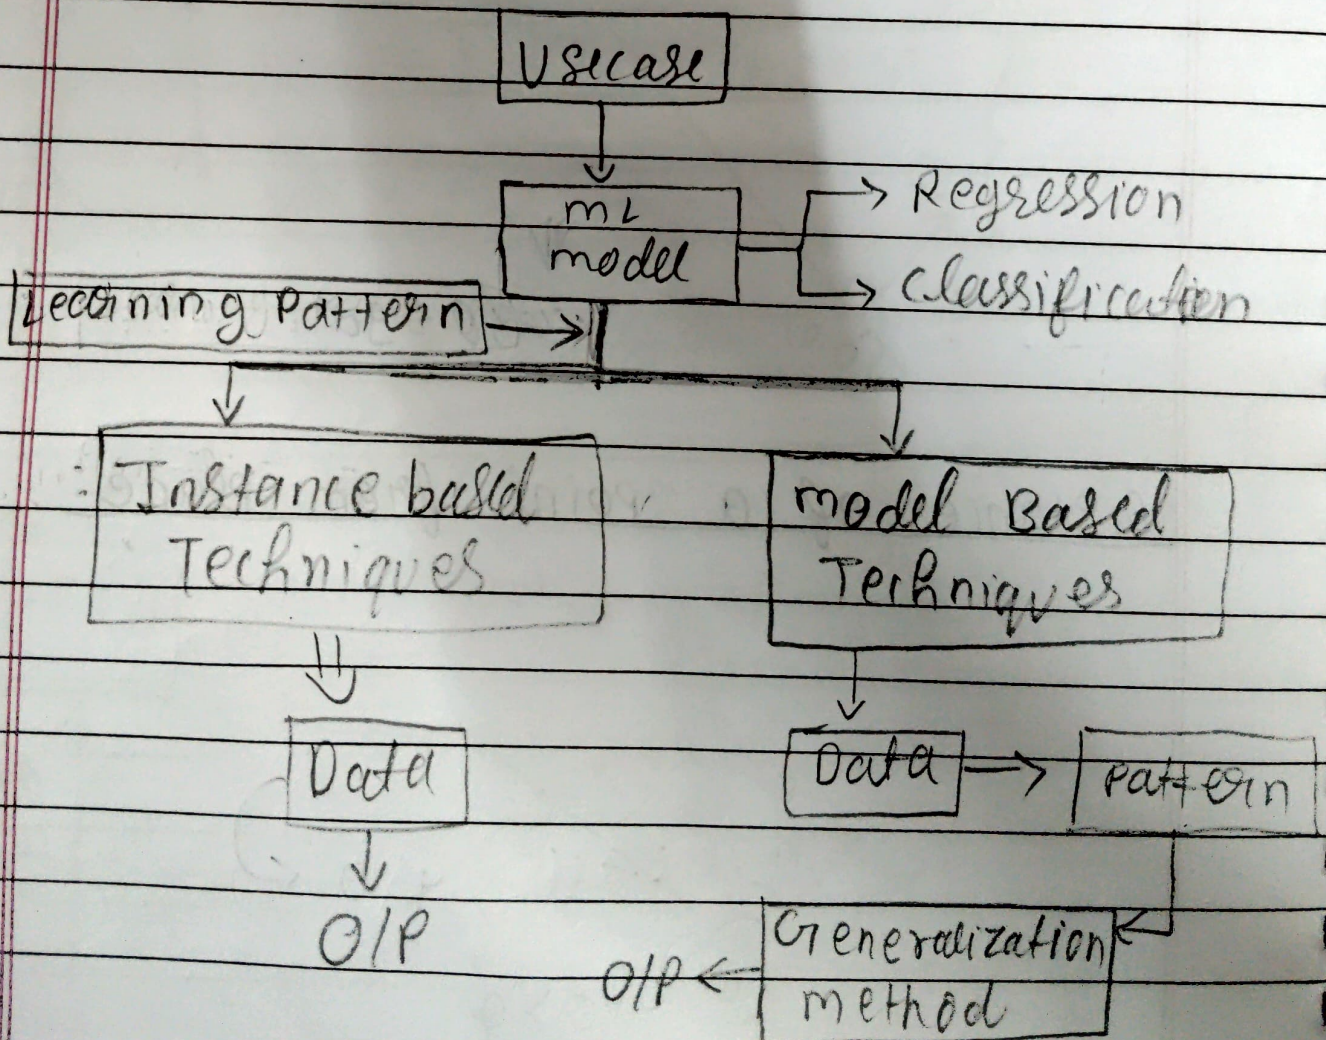 Usecase
ML
model
Regression
Classification
Learning Pattern
Instance based
Techniques
Model Based
Techniques
Data
Data
Pattern
O/P
Generalization
method
O/P